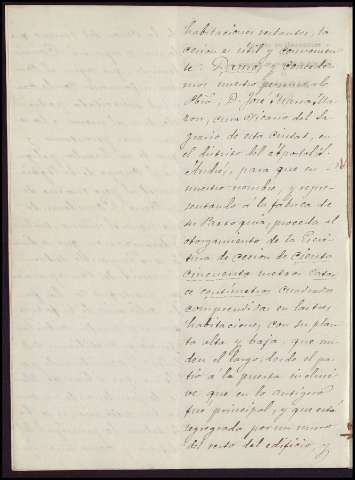 habitaciones restantes, la
cesion es util y convenien-
te: Damos y concede-
mos nuestro permiso al
Pbro. D. José Maria
cura Vicario del Sa-
grario de esta ciudad, en
el distrito del Apostol S.
Andrés, para que en
nuestro nombre, y repre-
sentando á la fábrica de
su Parroquia, proceda al
otorgamiento de la Escri-
tura de cesion de ciento
cincuenta metros cator-
ce centímetros cuadrados
comprendida en las tres
habitaciones, con su plan-
ta alta y baja, que mi-
den el largo, desde el pa-
tio á la puerta inclusi-
ve, que en lo antiguo
fué principal, y que está
segregada por un muro
del resto del edificio, y